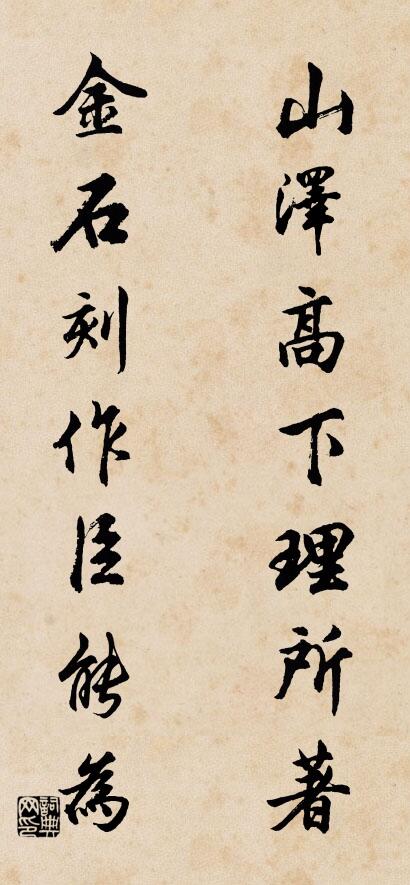 山澤高下理所著
金石刻作臣能為
詞典
网印